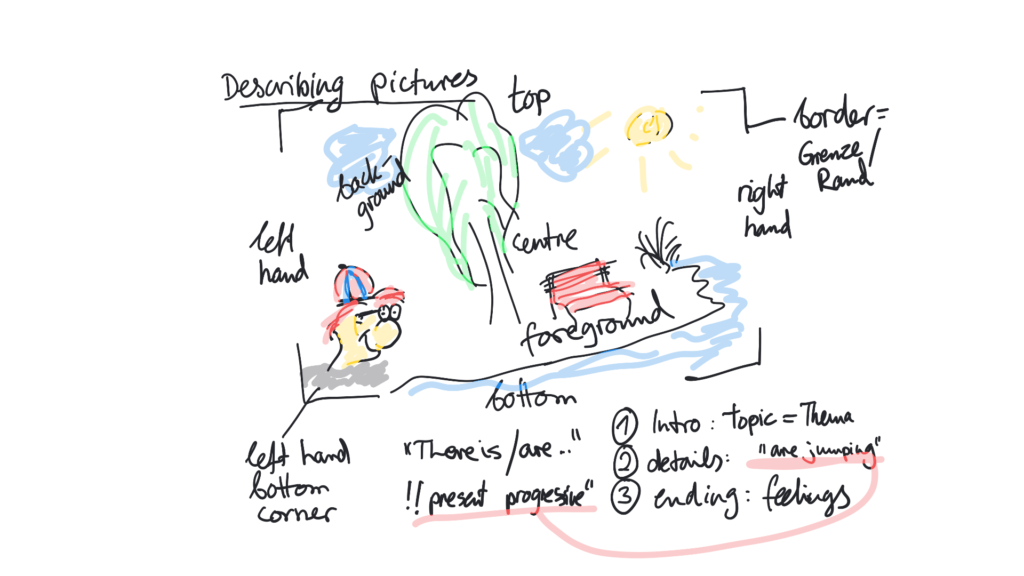 Describing pictures
top
border =
Grenze/
Rand
back-
ground
right
hand
left
hand
centre
foreground
bottom
left hand
bottom
corner
"There is/are.."
!! present progressive"
① Intro: topic = Thema
② details: "are jumping"
③ ending: feelings